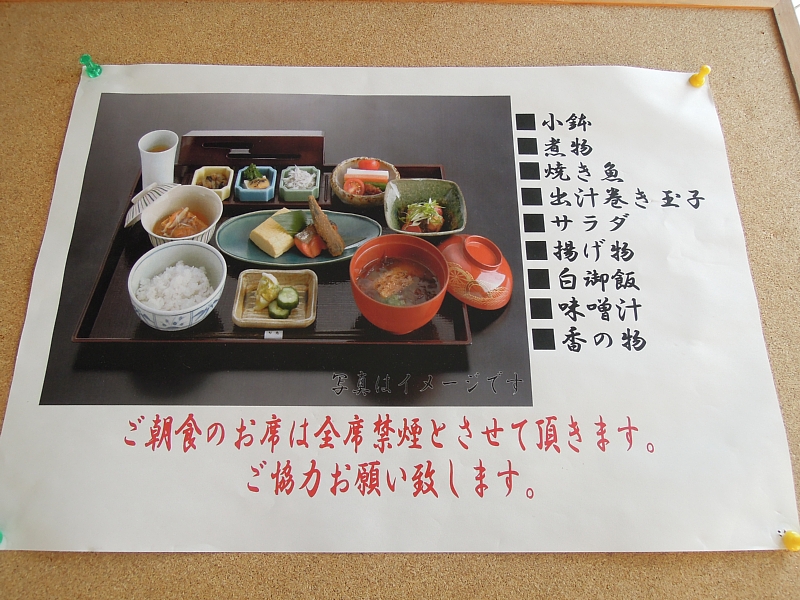 ■小鉢
■煮物
■焼き魚
■出汁巻き玉子
■サラダ
■揚げ物
■白御飯
■味噌汁
■香の物
写真はイメージです
ご朝食のお席は全席禁煙とさせて頂きます。
ご協力お願い致します。